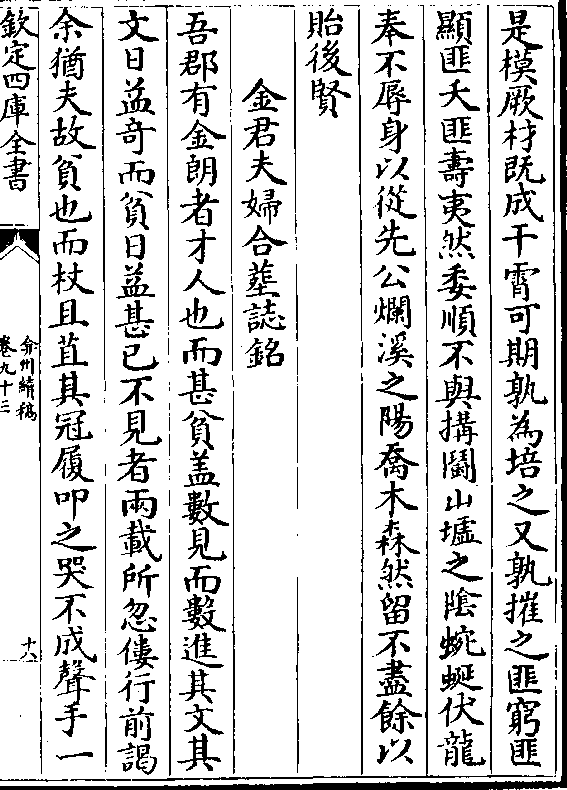 是模厥材既成干霄可期孰為培之又孰摧之匪窮匪
顯匪夭匪壽夷然委順不與搆鬭山墟之陰蜿蜒伏龍
奉不辱身以從先公爛溪之陽喬木森然留不盡餘以
貽後賢
金君夫婦合塟誌銘
吾郡有金朗者才人也而甚貧盖數見而數進其文其
文日益竒而貧日益甚已不見者兩載所忽僂行前謁
余猶夫故貧也而杖且苴其冠履叩之哭不成聲手一
欽定四庫全書
弇州續稿
卷九十三
十八